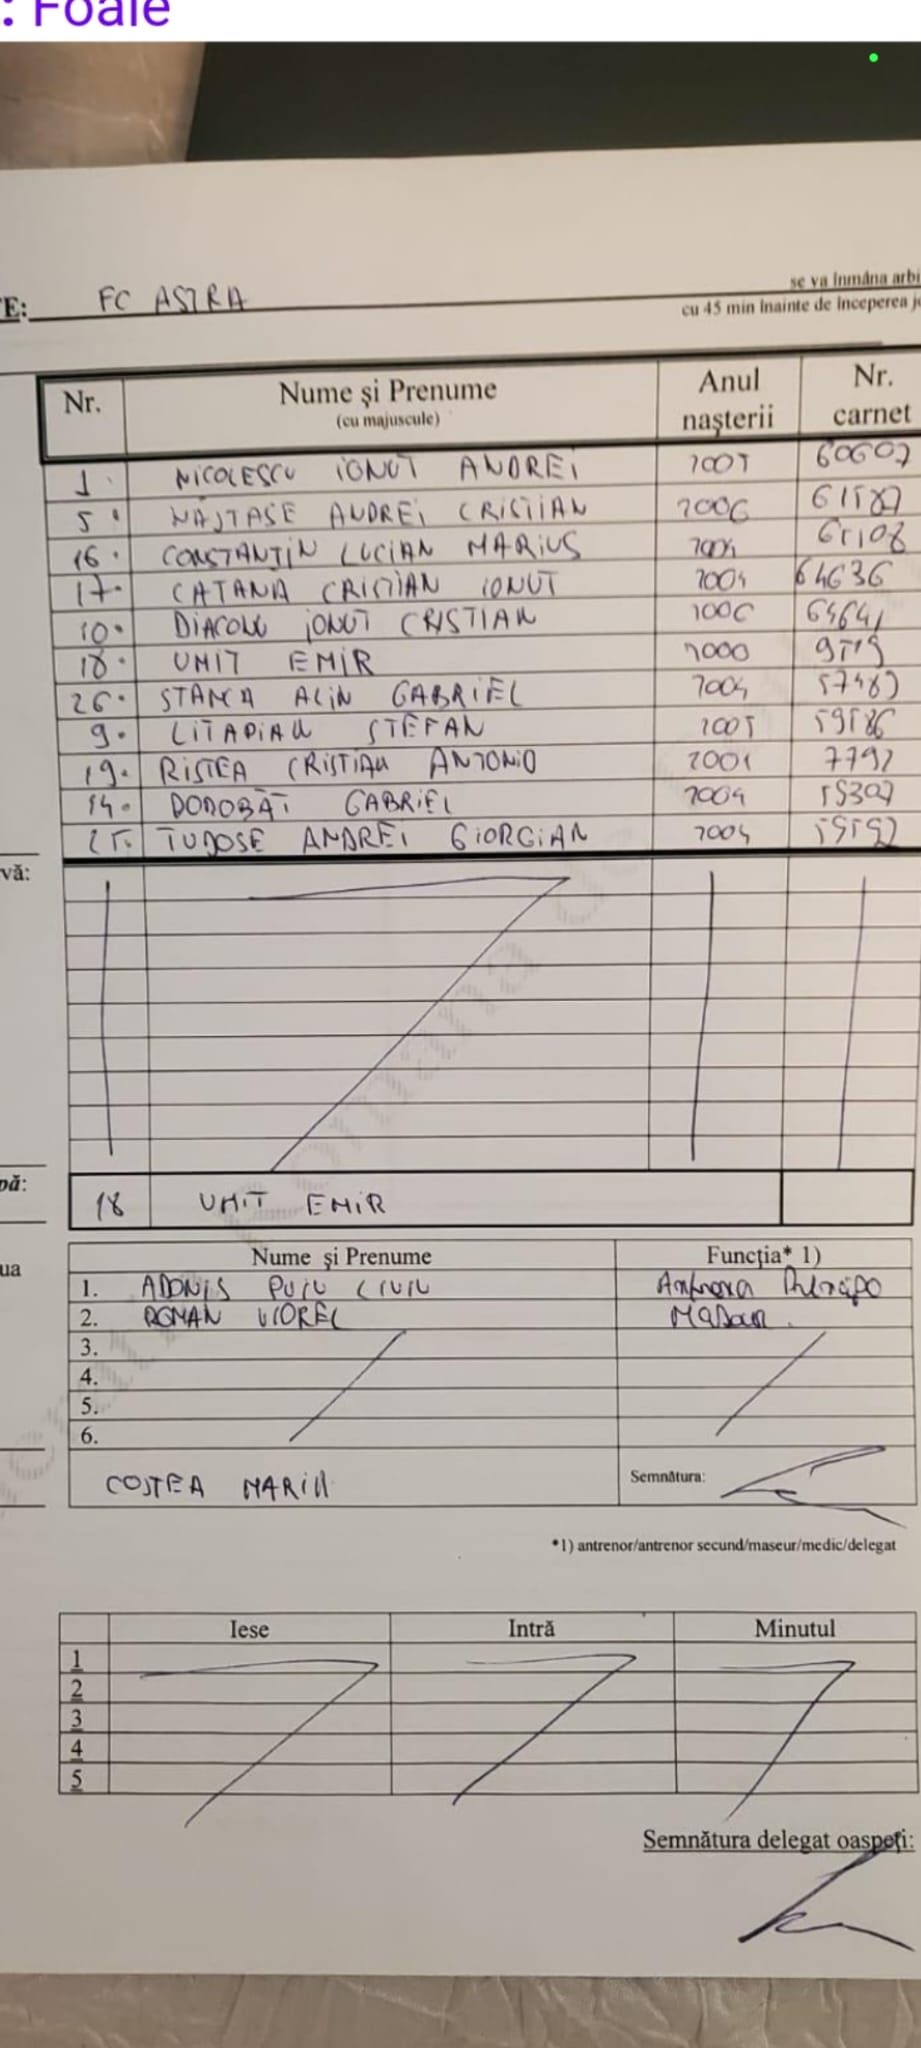 : Foaie
E: FC ASTRA
se va înmâna arbi
cu 45 min înainte de începerea j
Nr. Nume și Prenume (cu majuscule) Anul nașterii Nr. carnet
1. NICOLESCU IONUT ANDREI 2005 60607
5. NASTASE ANDREI CRISTIAN 2006 61587
16. CONSTANTIN LUCIAN MARIUS 2004 65108
17. CATANA CRISTIAN IONUT 2004 64636
10. DIACONU IONUT CRISTIAN 2006 64641
18. UMIT EMIR 2000
26. STANCA ALIN GABRIEL 2004 57489
9. STEFAN 2005 59586
19. RISTEA CRISTIAN ANTONIO 2001 7792
14. DOROBĂT GABRIEL 2004 55307
25. TUDOSE ANDREI GIORGIAN 2004 59592
vă:
pă:
18 UMIT EMIR
ua
Nume și Prenume Funcția* 1)
1. ADONIS PUIU LIVIU
2. ROMAN VIOREL
3.
4.
5.
6.
COSTEA MARIN Semnătura:
*1) antrenor/antrenor secund/maseur/medic/delegat
Iese Intră Minutul
1
2
3
4
5
Semnătura delegat oaspeți: